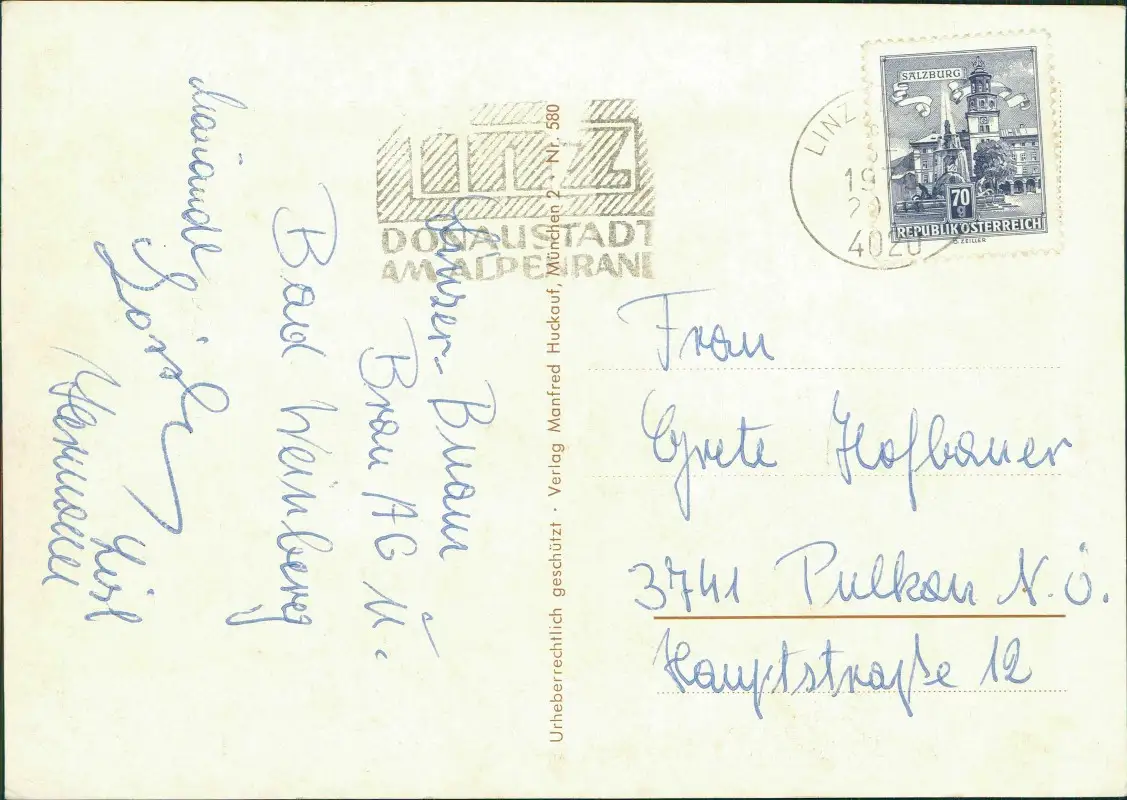 Linz
DONAUSTADT
AM ALPENRAND
LINZ
19
4020
SALZBURG
70
g
REPUBLIK ÖSTERREICH
G. ZEILLER
Brau AG u.
Bad Weinberg
Hermann
Urheberrechtlich geschützt · Verlag Manfred Huckauf, München 2 · Nr. 580
Frau
Grete Hofbauer
3741 Pulkau N.Ö.
Hauptstraße 12